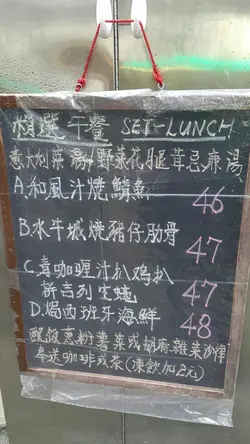 精選 午餐 SET-LUNCH
意大利菜湯 野菜花腿茸忌廉湯
A.和風汁燒鯖魚 46
B.水牛城燒豬仔肋骨 47
C.青咖喱汁扒鸡扒 47
新吉列生蠔
D.焗西班牙海鮮 48
酸飯意粉薯菜或胡麻雜菜沙律
奉送咖啡或茶(凍飲加2元)